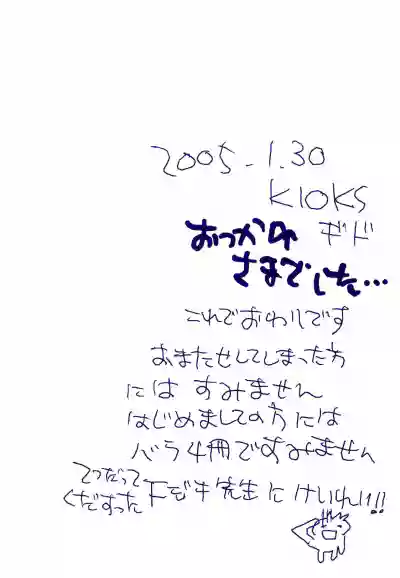 2005.1.30
KIOKS
ギド
おつかれ
さまでした…
これでおわりです
おまたせしてしまった方
にはすみません
はじめましての方には
バラ4冊ですみません
てつだって
くだすった下ジキ先生にけいれい!!